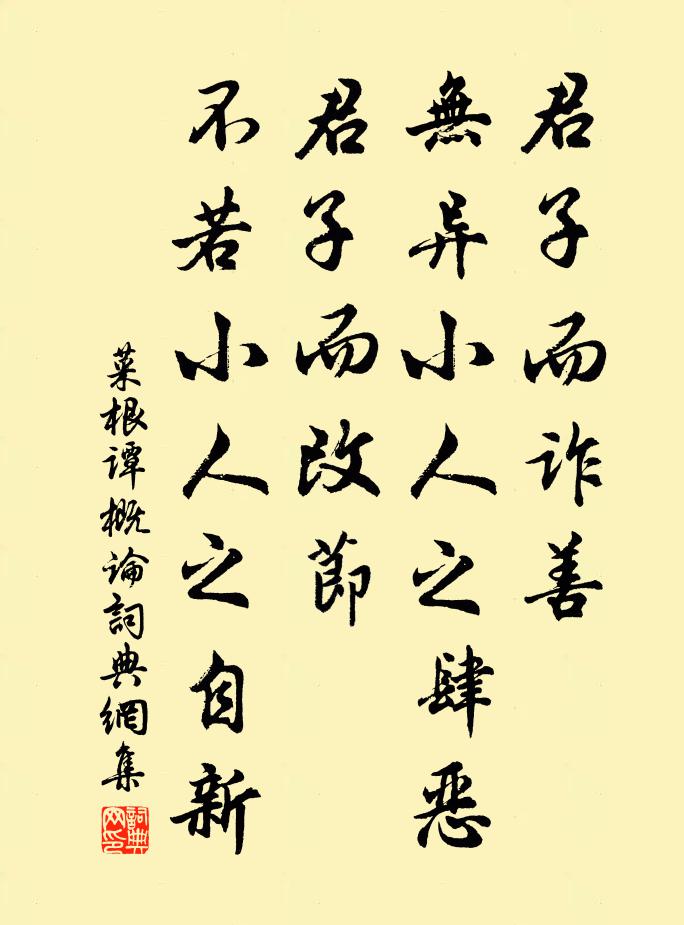 君子而诈善
無异小人之肆惡
君子而改節
不若小人之自新
菜根谭概論詞典網集
詞典網印